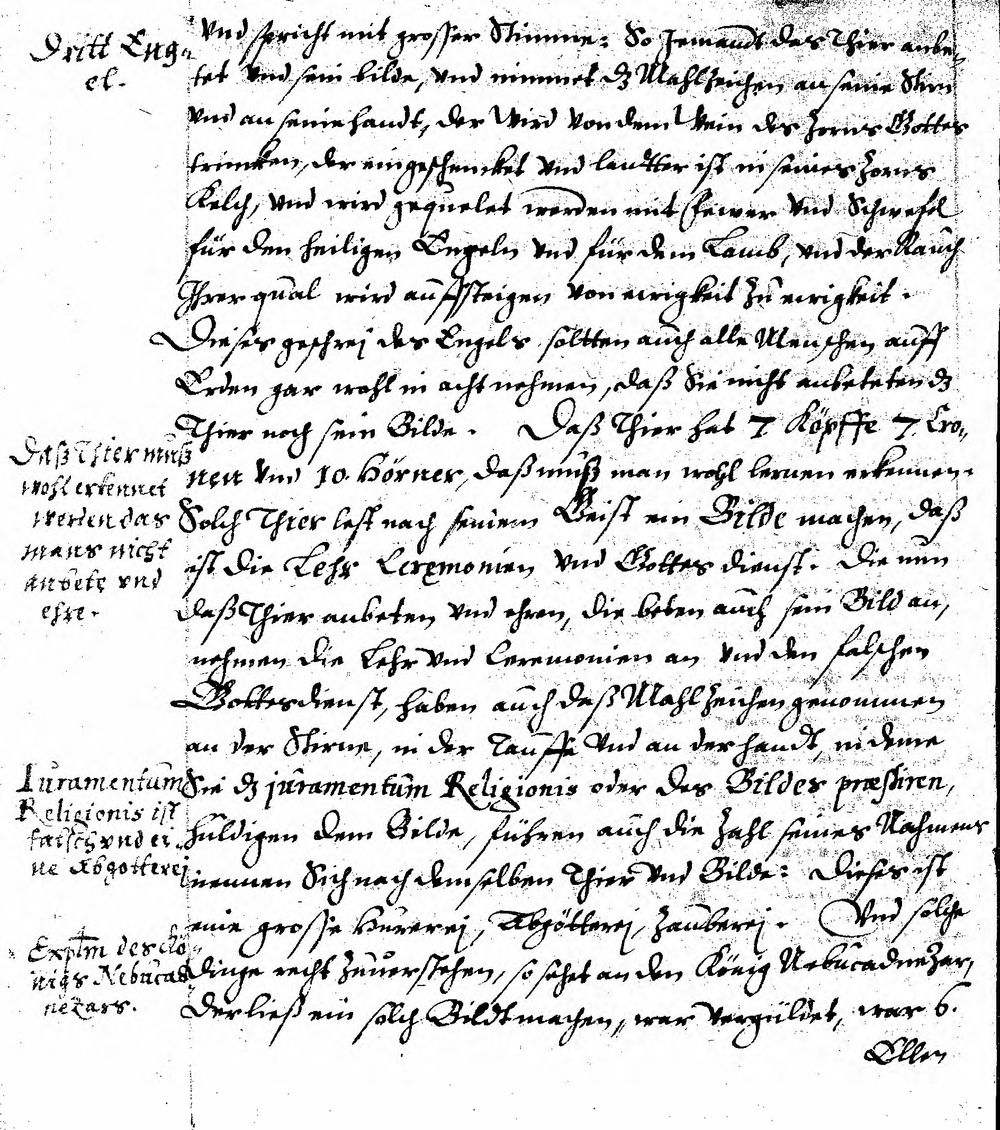 Dritt Eng-
el.
Und spricht mit grosser Stimme: So Jemandt das Thier anbe-
tet und sein bilde, und nimmet dz Mahlzeichen an seine Stirn
Und an seine handt, der Wird Von dem Wein des Zorns Gottes
trincken, der eingeschencket und lautter ist in seines Zorns
Kelch, und wird gequelet werden mit Fewer und Schwefel
für den heiligen Engeln und für dem Lamb, und der Rauch
Ihrer qual wird auffsteigen von ewigkeit Zu ewigkeit.
Dieses geschrej des Engels soltten auch alle Menschen auff
Erden gar wohl in acht nehmen, daß Sie nicht anbeteten dz
Thier noch sein Bilde. Daß Thier hat 7 Köpffe 7 Cro-
nen und 10. Hörner, daß muß man wohl lernen erkennen.
Daß Thier muß
wohl erkennet
werden das
mans nicht
anbete und
ehre.
Solch Thier lest nach seinem Geist ein Bilde machen, daß
ist die Lehr Ceremonien und Gottes dienst. Die nun
daß Thier anbeten und ehren, die beten auch sein Bild an,
nehmen die Lehr und Ceremonien an und den falschen
Gottesdienst, haben auch daß Mahlzeichen genommen
an der Stirne, in der Tauffe Und an der handt, in deme
Iuramentum
Religionis ist
falsch und ei-
ne Abgotterej
Sie dz juramentum Religionis oder des Bildes præstiren,
huldigen dem Bilde, führen auch die Zahl seines Nahmens
nennen Sich nach demselben Thier und Bilde: Dieses ist
eine grosse Hurerej, Abgötterej, Zauberej. Und solche
Explm des Kö-
nigs Nebucad
nezars.
Dinge recht Zuverstehen, so sehet an den König Nebucadnezar,
Der ließ ein solch Bildt machen, war vergüldet, war 6.
Ellen